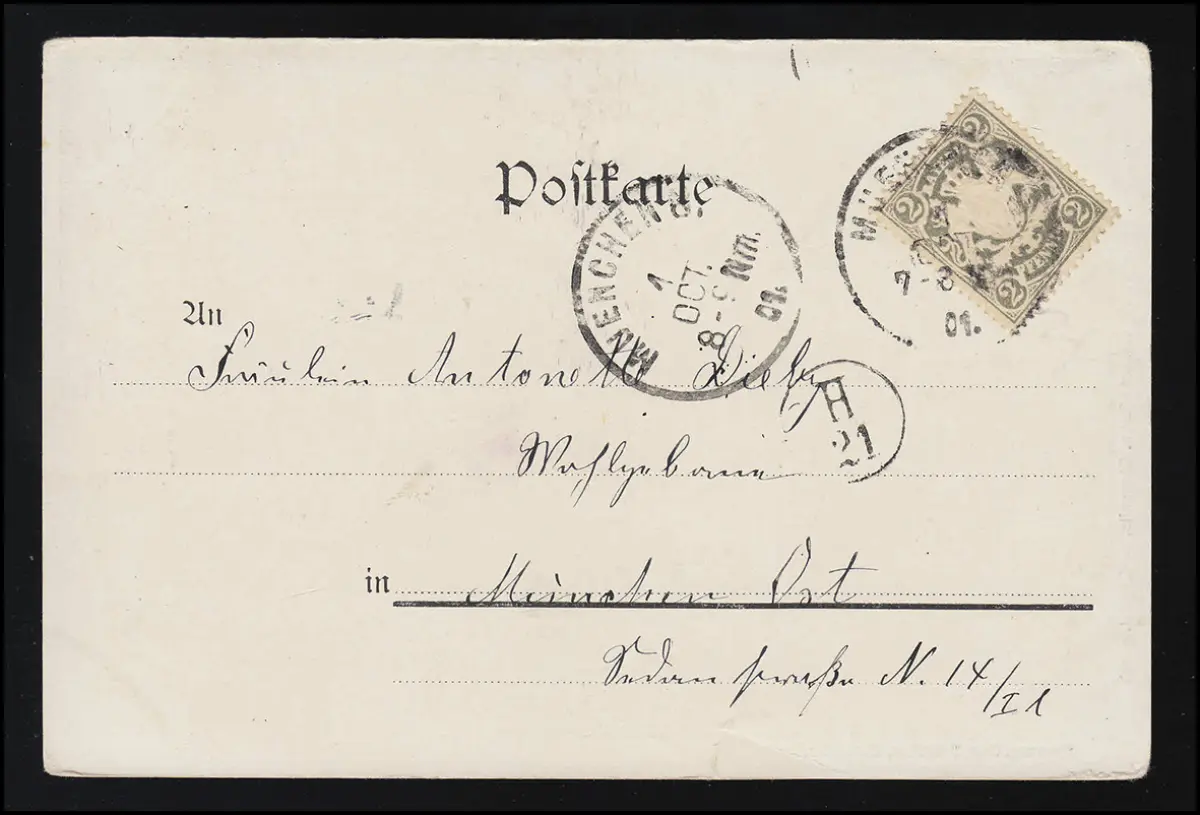 Postkarte
MUENCHEN
1
OCT.
8-9 Nm.
01.
2 2 2
7-8
01.
An
Fräulein Antonette
H
21
Wohlgeboren
in München Ost
Sedanstraße N. 14/I